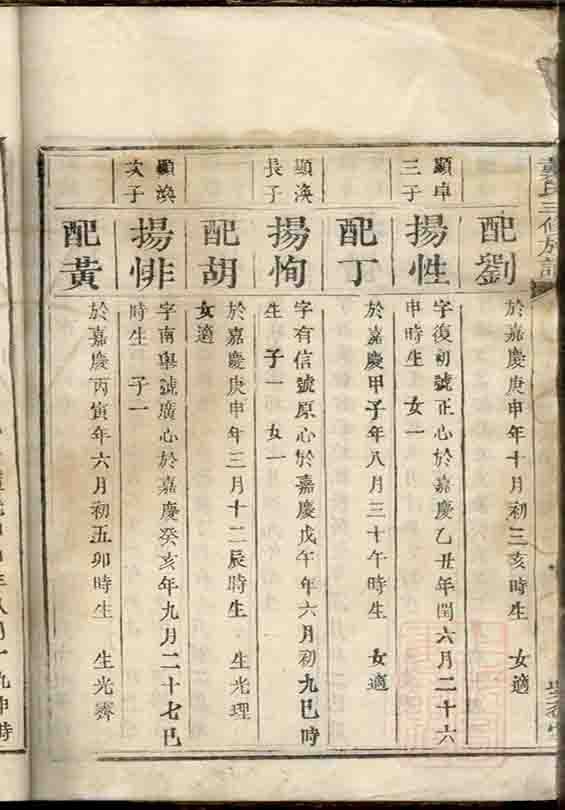 氏三修族譜
配劉
於嘉慶庚申年十月初三亥時生 女適
顯卓
三子
揚性
字復初號正心於嘉慶乙丑年閏六月二十六
申時生 女一
配丁
於嘉慶甲子年八月三十午時生 女適
顯渙
長子
揚恂
字有信號原心於嘉慶戊午年六月初九巳時
生 子一 女一
配胡
於嘉慶庚申年三月十二辰時生 生光理
女適
顯渙
次子
揚悱
字南舉號廣心於嘉慶癸亥年九月二十七巳
時生 子一
配黃
於嘉慶丙寅年六月初五卯時生 生光霽
九申時